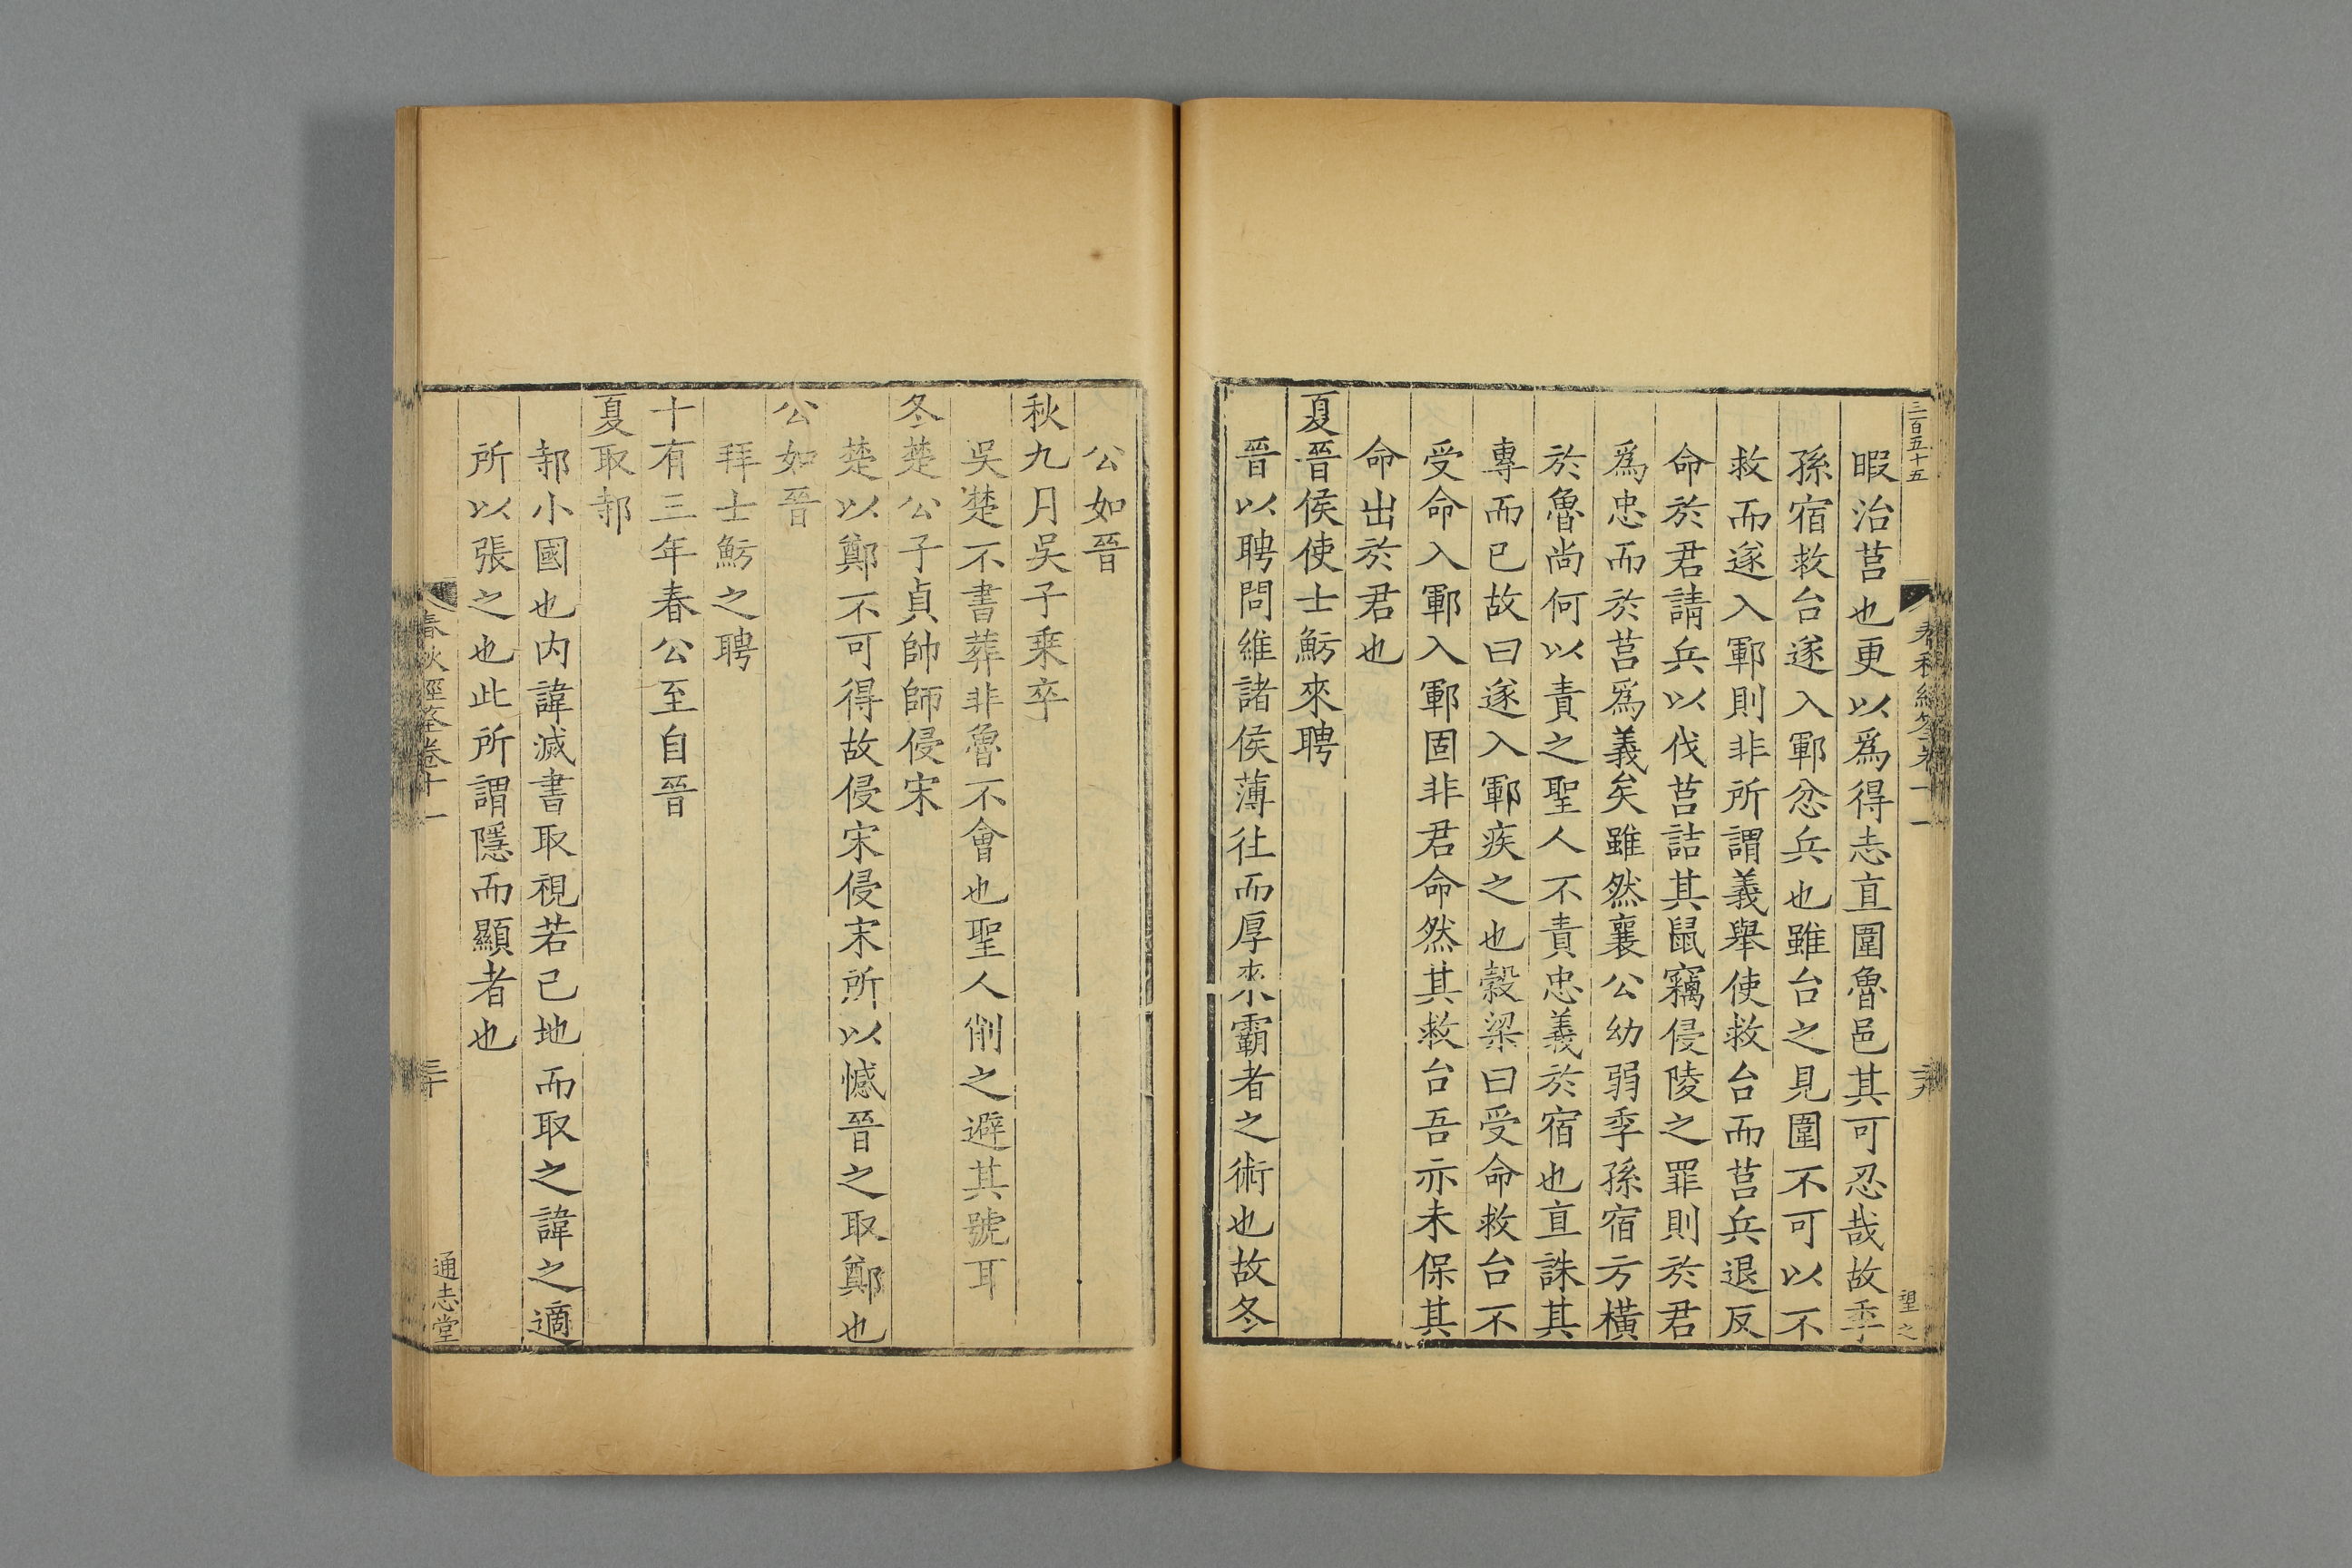 三百五十五
暇治莒也更以爲得志直圍魯邑其可忍哉故季
孫宿救台遂入鄆忿兵也雖台之見圍不可以不
救而遂入鄆則非所謂義舉使救台而莒兵退反
命於君請兵以伐莒詰其鼠竊侵陵之罪則於君
爲忠而於莒爲義矣雖然襄公幼弱季孫宿方橫
於魯尚何以責之聖人不責忠義於宿也直誅其
專而已故曰遂入鄆疾之也穀梁曰受命救台不
受命入鄆入鄆固非君命然其救台吾亦未保其
命出於君也
夏晉侯使士魴來聘
晉以聘問維諸侯薄往而厚來霸者之術也故冬
公如晉
秋九月吳子乘卒
吳楚不書葬非魯不會也聖人削之避其號耳
冬楚公子貞帥師侵宋
楚以鄭不可得故侵宋侵宋所以憾晉之取鄭也
公如晉
拜士魴之聘
十有三年春公至自晉
夏取邿
邿小國也内諱滅書取視若己地而取之諱之適
所以張之也此所謂隱而顯者也
春秋經筌卷十一
三十
通志堂